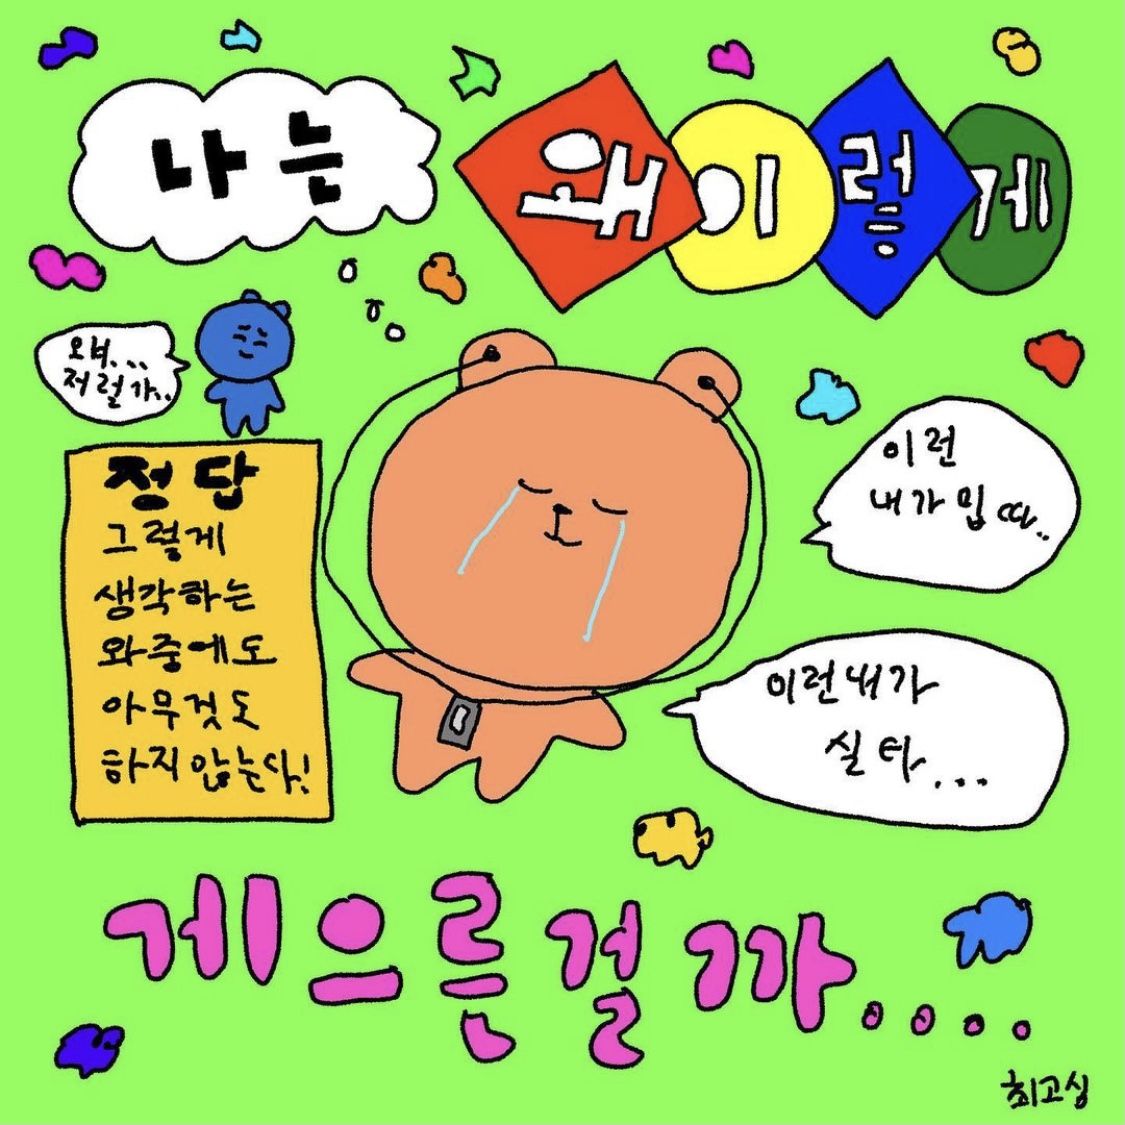 나는
왜이렇게
왜...
저럴가..
정답
그렇게
생각하는
와중에도
아무것도
하지않는다!
이런
내가밉따..
이런내가
실타...
게으른걸까....
최고심